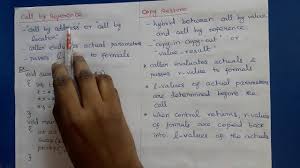 Call by Reference
- "call by address or call by
location"
caller evaluates actual parameters
passes to formals
void
{
}
void
{
Copy Restore
- hybrid between call by value
and call by reference.
- "copy-in copy-out" or
"value-result"
* caller evaluates actuals &
passes r-value to formals
* l-values of actual parameters
are determined before the
call
* when control returns, r-values
of formals are copied back
into l-values of the actuals